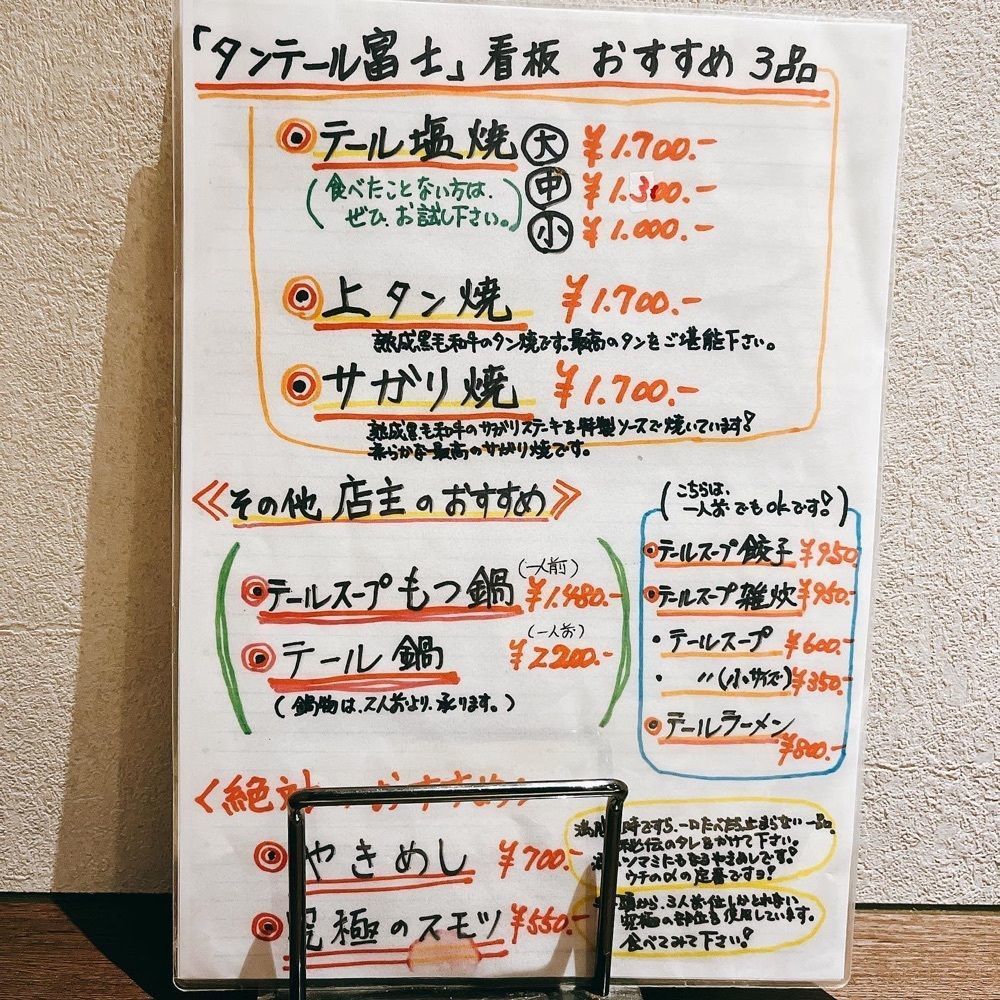 「タンテール富士」看板 おすすめ 3品
◎テール塩焼 大 ¥1.700.-
(食べたことない方は、 中 ¥1.300.-
ぜひ、お試し下さい。) 小 ¥1.000.-
◎上タン焼 ¥1.700.-
熟成黒毛和牛のタン焼です。最高のタンをご堪能下さい。
◎サガリ焼 ¥1.700.-
熟成黒毛和牛のサガリステーキを特製ソースで焼いています!
柔らかな最高のサガリ焼です。
≪その他 店主のおすすめ≫
(一人前)
◎テールスープもつ鍋 ¥1.480.-
(一人前)
◎テール鍋 ¥2200.-
(鍋物は、2人前より、承ります。)
(こちらは、
一人前でもOKです!)
◎テールスープ餃子 ¥950
◎テールスープ雑炊 ¥950.-
・テールスープ ¥600.-
・〃(小サイズ) ¥350.-
◎テールラーメン
¥800.-
〈絶対 おすすめ〉
◎やきめし ¥700.-
ですら、一口たべたら止まらない一品。
秘伝のタレをかけて下さい。
ツマミにもなるやきめしです!
ウチの〆の定番ですヨ!
◎究極のスモツ ¥550.-
頭から、3人前位しかとれない
究極の部位を使用しています。
食べてみて下さい!